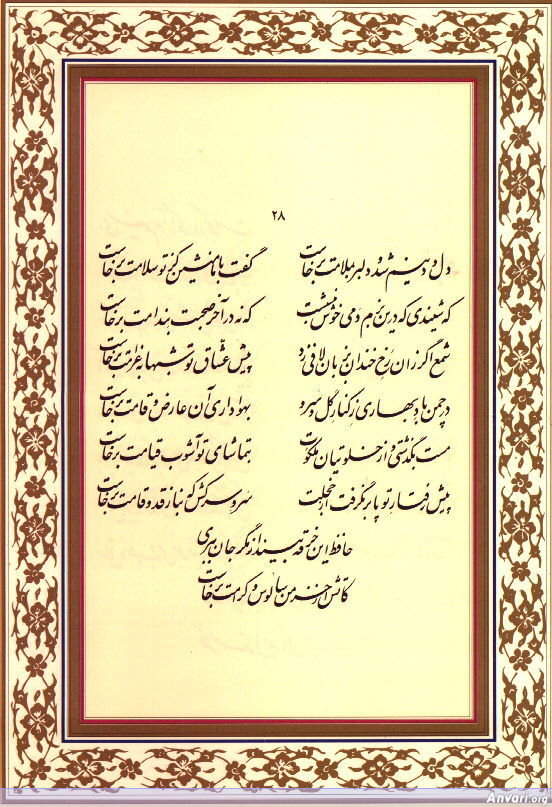 ۲۸
دل و دینم شد و دلبر بملامت برخاست گفت با ما منشین کز تو سلامت برخاست
که شنیدی که درین بزم دمی خوش بنشست که نه در آخر صحبت بندامت برخاست
شمع اگر زان رخ خندان بزبان لافی زد پیش عشاق تو شبها بغرامت برخاست
در چمن باد بهاری ز کنار گل و سرو بهواداری آن عارض و قامت برخاست
مست بگذشتی و از خلوتیان ملکوت بتماشای تو آشوب قیامت برخاست
پیش رفتار تو پا بر نگرفت از خجلت سرو سرکش که بناز قد و قامت برخاست
حافظ این خرقه بینداز مگر جان ببری
کاتش از خرمن سالوس و کرامت برخاست
Anvari.org